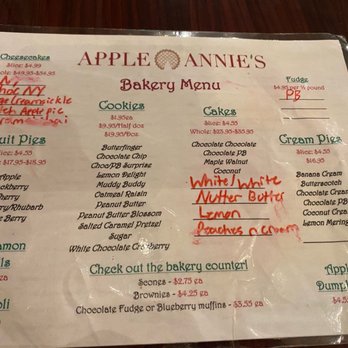 APPLE ANNIE'S
Bakery Menu
Cheesecakes
Slice: $4.99
Whole: $49.95-$54.95
NY
Fruit Pies
Slice: $4.55
$17.95
Apple
Cherry
Berry
Berry/Rhubarb
Berry
Cookies
$1.95ea
$9.95/Half doz
$19.95/Doz
Butterfinger
Chocolate Chip
Choc/PB Surprise
Lemon Delight
Muddy Buddy
Oatmeal Raisin
Peanut Butter
Peanut Butter Blossom
Salted Caramel Pretzel
Sugar
White Chocolate Cranberry
Cakes
Slice: $4.55
Whole: $25.95-$35.95
Chocolate Chocolate
Chocolate PB
Maple Walnut
Coconut
White/White
Nutter Butter
Lemon
Peaches n cream
Fudge
$4.95 per ½ pound
PB
Cream Pies
Slice: $4.55
$16.95
Banana Cream
Butterscotch
Chocolate Cream
Chocolate PB
Coconut Cream
Lemon Meringue
Check out the bakery counter!
Scones - $2.75 ea
Brownies - $4.25 ea
Chocolate Fudge or Blueberry muffins - $3.55 ea
Apple
Dumpl
$4.55